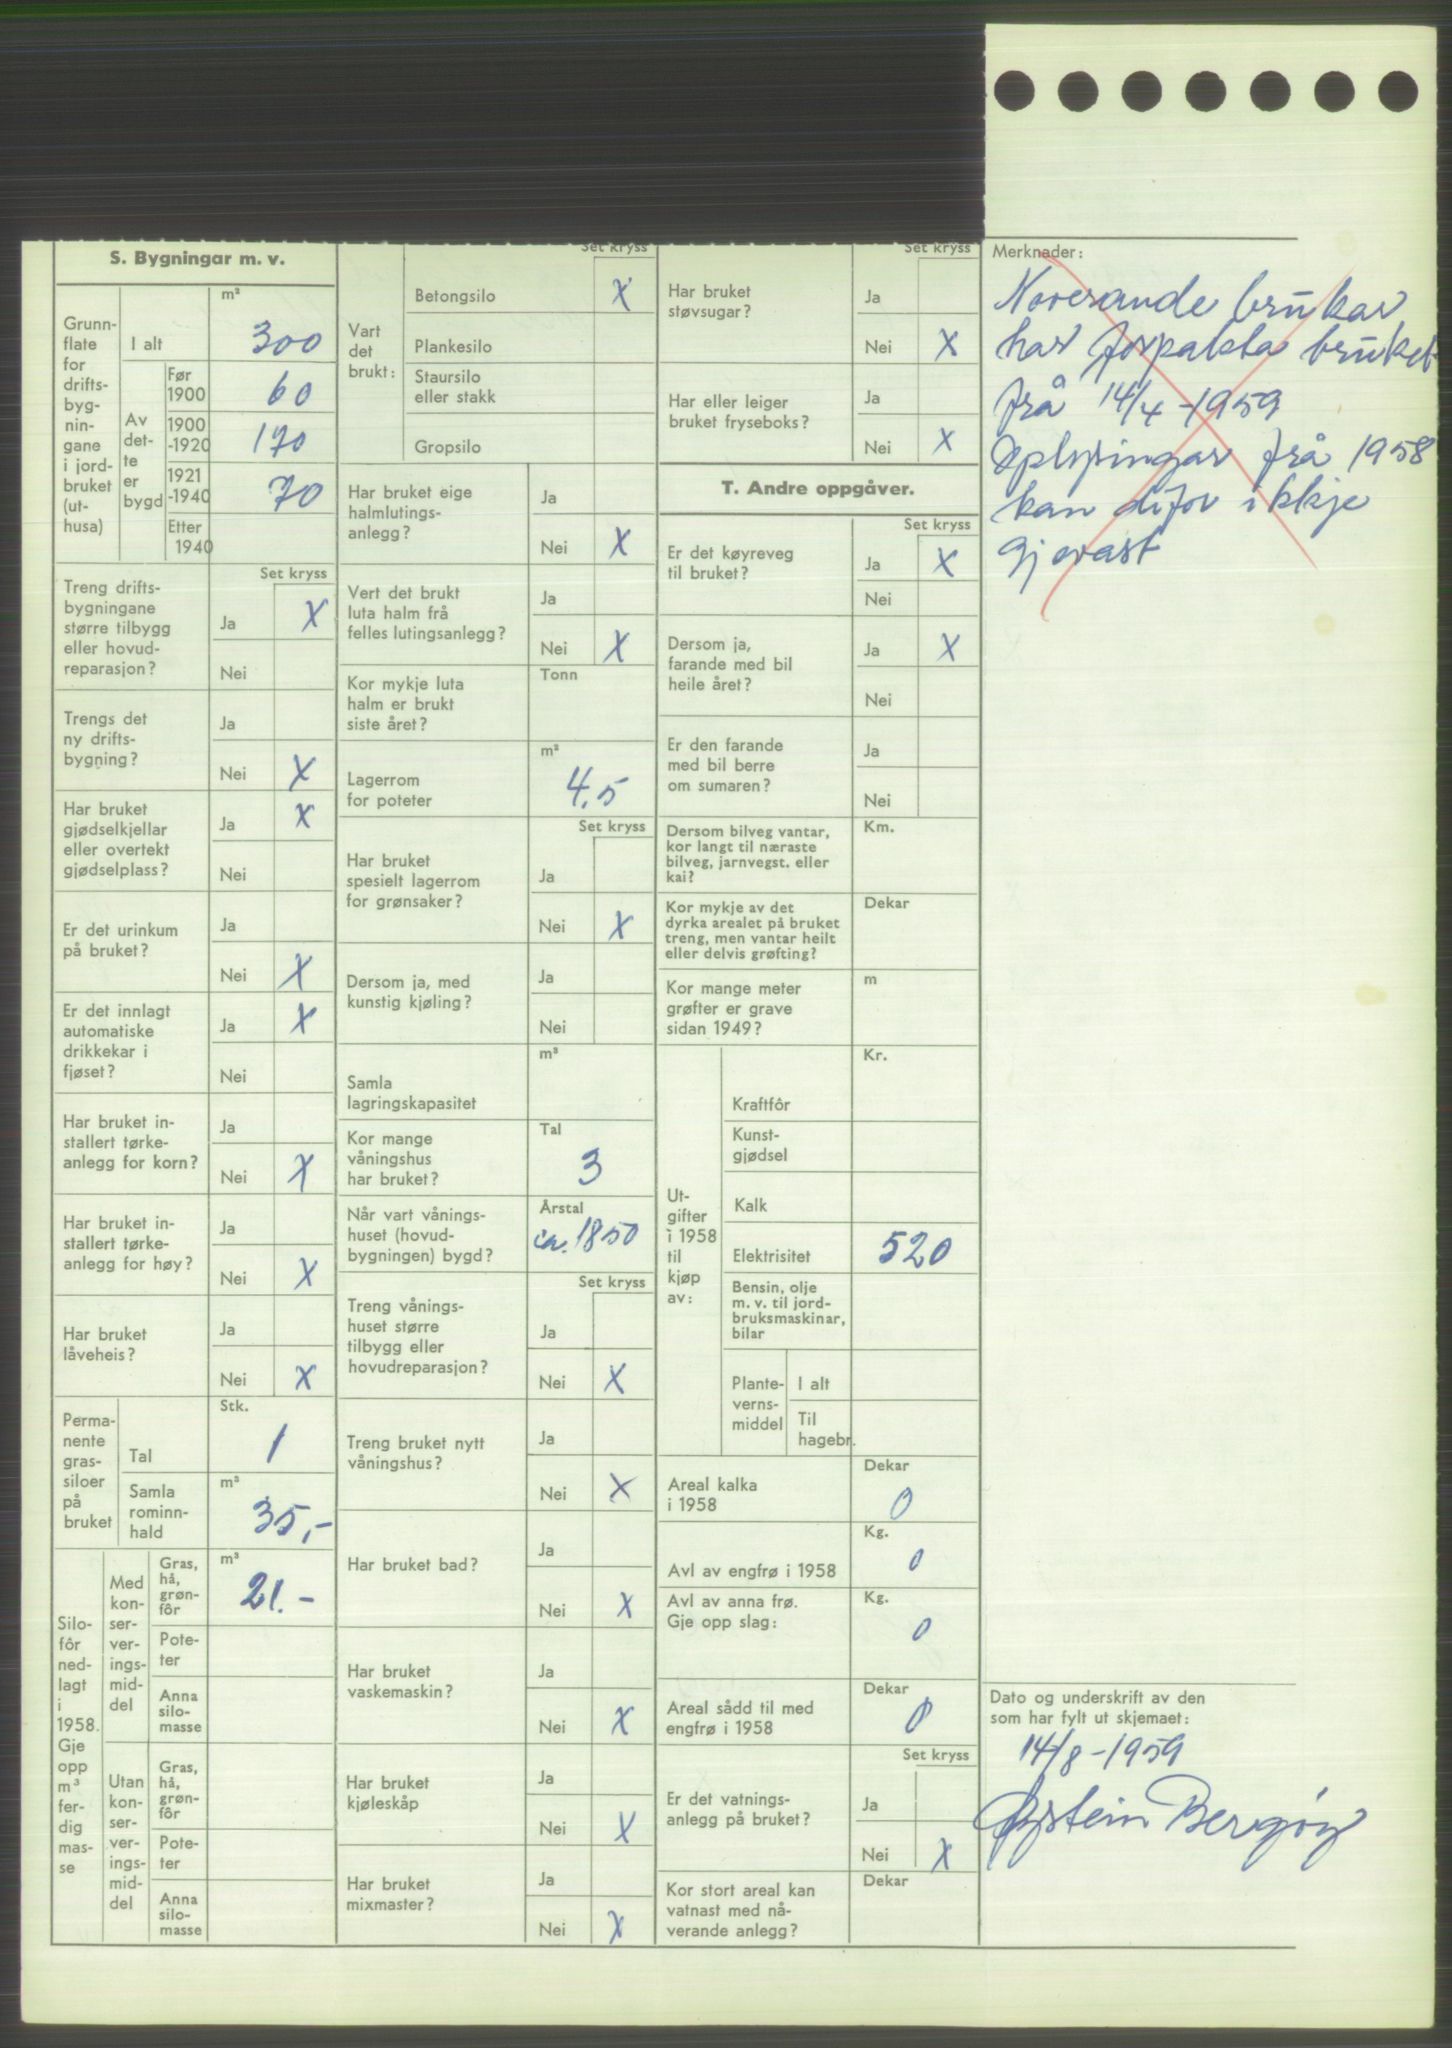 S. Bygningar m. v.
Grunn-
flate
for
drifts-
byg-
nin-
gane
i jord-
bruket
(ut-
husa)
m²
I alt 300
Av
det-
te
er
bygd
Før
1900 60
1900
-1920 170
1921
-1940 70
Etter
1940
Set kryss
Treng drifts-
bygningane
større tilbygg
eller hovud-
reparasjon?
Ja X
Nei
Trengs det
ny drifts-
bygning?
Ja
Nei X
Har bruket
gjødselkjellar
eller overtekt
gjødselplass?
Ja X
Nei
Er det urinkum
på bruket?
Ja
Nei X
Er det innlagt
automatiske
drikkekar i
fjøset?
Ja X
Nei
Har bruket in-
stallert tørke-
anlegg for korn?
Ja
Nei X
Har bruket in-
stallert tørke-
anlegg for høy?
Ja
Nei X
Har bruket
låveheis?
Ja
Nei X
Perma-
nente
gras-
siloer
på
bruket
Stk.
Tal 1
m³
Samla
rominn-
hald
35,-
Silo-
fôr
ned-
lagt
i
1958.
Gje
opp
m³
fer-
dig
mas-
se
Med
kon-
ser-
ver-
ings-
mid-
del
m³
Gras,
hå,
grøn-
fôr
21.-
Pote-
ter
Anna
silo-
masse
Utan
kon-
ser-
ver-
ings-
mid-
del
Gras,
hå,
grøn-
fôr
Pote-
ter
Anna
silo-
masse
Set kryss
Vart
det
brukt:
Betongsilo X
Plankesilo
Staursilo
eller stakk
Gropsilo
Har bruket eige
halmlutings-
anlegg?
Ja
Nei X
Vert det brukt
luta halm frå
felles lutingsanlegg?
Ja
Nei X
Kor mykje luta
halm er brukt
siste året?
Tonn
Lagerrom
for poteter
m³
4,5
Set kryss
Har bruket
spesielt lagerrom
for grønsaker?
Ja
Nei X
Dersom ja, med
kunstig kjøling?
Ja
Nei
Samla
lagringskapasitet
m³
Kor mange
våningshus
har bruket?
Tal
3
Når vart vånings-
huset (hovud-
bygningen) bygd?
Årstal
ca. 1850
Set kryss
Treng vånings-
huset større
tilbygg eller
hovudreparasjon?
Ja
Nei X
Treng bruket nytt
våningshus?
Ja
Nei X
Har bruket bad?
Ja
Nei X
Har bruket
vaskemaskin?
Ja
Nei X
Har bruket
kjøleskåp
Ja
Nei X
Har bruket
mixmaster?
Ja
Nei X
Set kryss
Har bruket
støvsugar?
Ja
Nei X
Har eller leiger
bruket fryseboks?
Ja
Nei X
T. Andre oppgåver.
Set kryss
Er det køyreveg
til bruket?
Ja X
Nei
Dersom ja,
farande med bil
heile året?
Ja X
Nei
Er den farande
med bil berre
om sumaren?
Ja
Nei
Dersom bilveg vantar,
kor langt til næraste
bilveg, jarnvegst. eller
kai?
Km.
Kor mykje av det
dyrka arealet på bruket
treng, men vantar heilt
eller delvis grøfting?
Dekar
Kor mange meter
grøfter er grave
sidan 1949?
m
Ut-
gifter
i 1958
til
kjøp
av:
Kr.
Kraftfôr
Kunst-
gjødsel
Kalk
Elektrisitet 520
Bensin, olje
m. v. til jord-
bruksmaskinar,
bilar
Plante-
verns-
middel
I alt
Til
hagebr.
Areal kalka
i 1958
Dekar
0
Avl av engfrø i 1958
Kg.
0
Avl av anna frø.
Gje opp slag:
Kg.
0
Areal sådd til med
engfrø i 1958
Dekar
0
Set kryss
Er det vatnings-
anlegg på bruket?
Ja
Nei X
Kor stort areal kan
vatnast med nå-
verande anlegg?
Dekar
Merknader:
Noverande brukar
har forpakta bruket
frå 14/4 -1959
Oplysingar frå 1958
kan difor ikkje
gjevast
Dato og underskrift av den
som har fylt ut skjemaet:
14/8 -1959
Øystein Bergöy